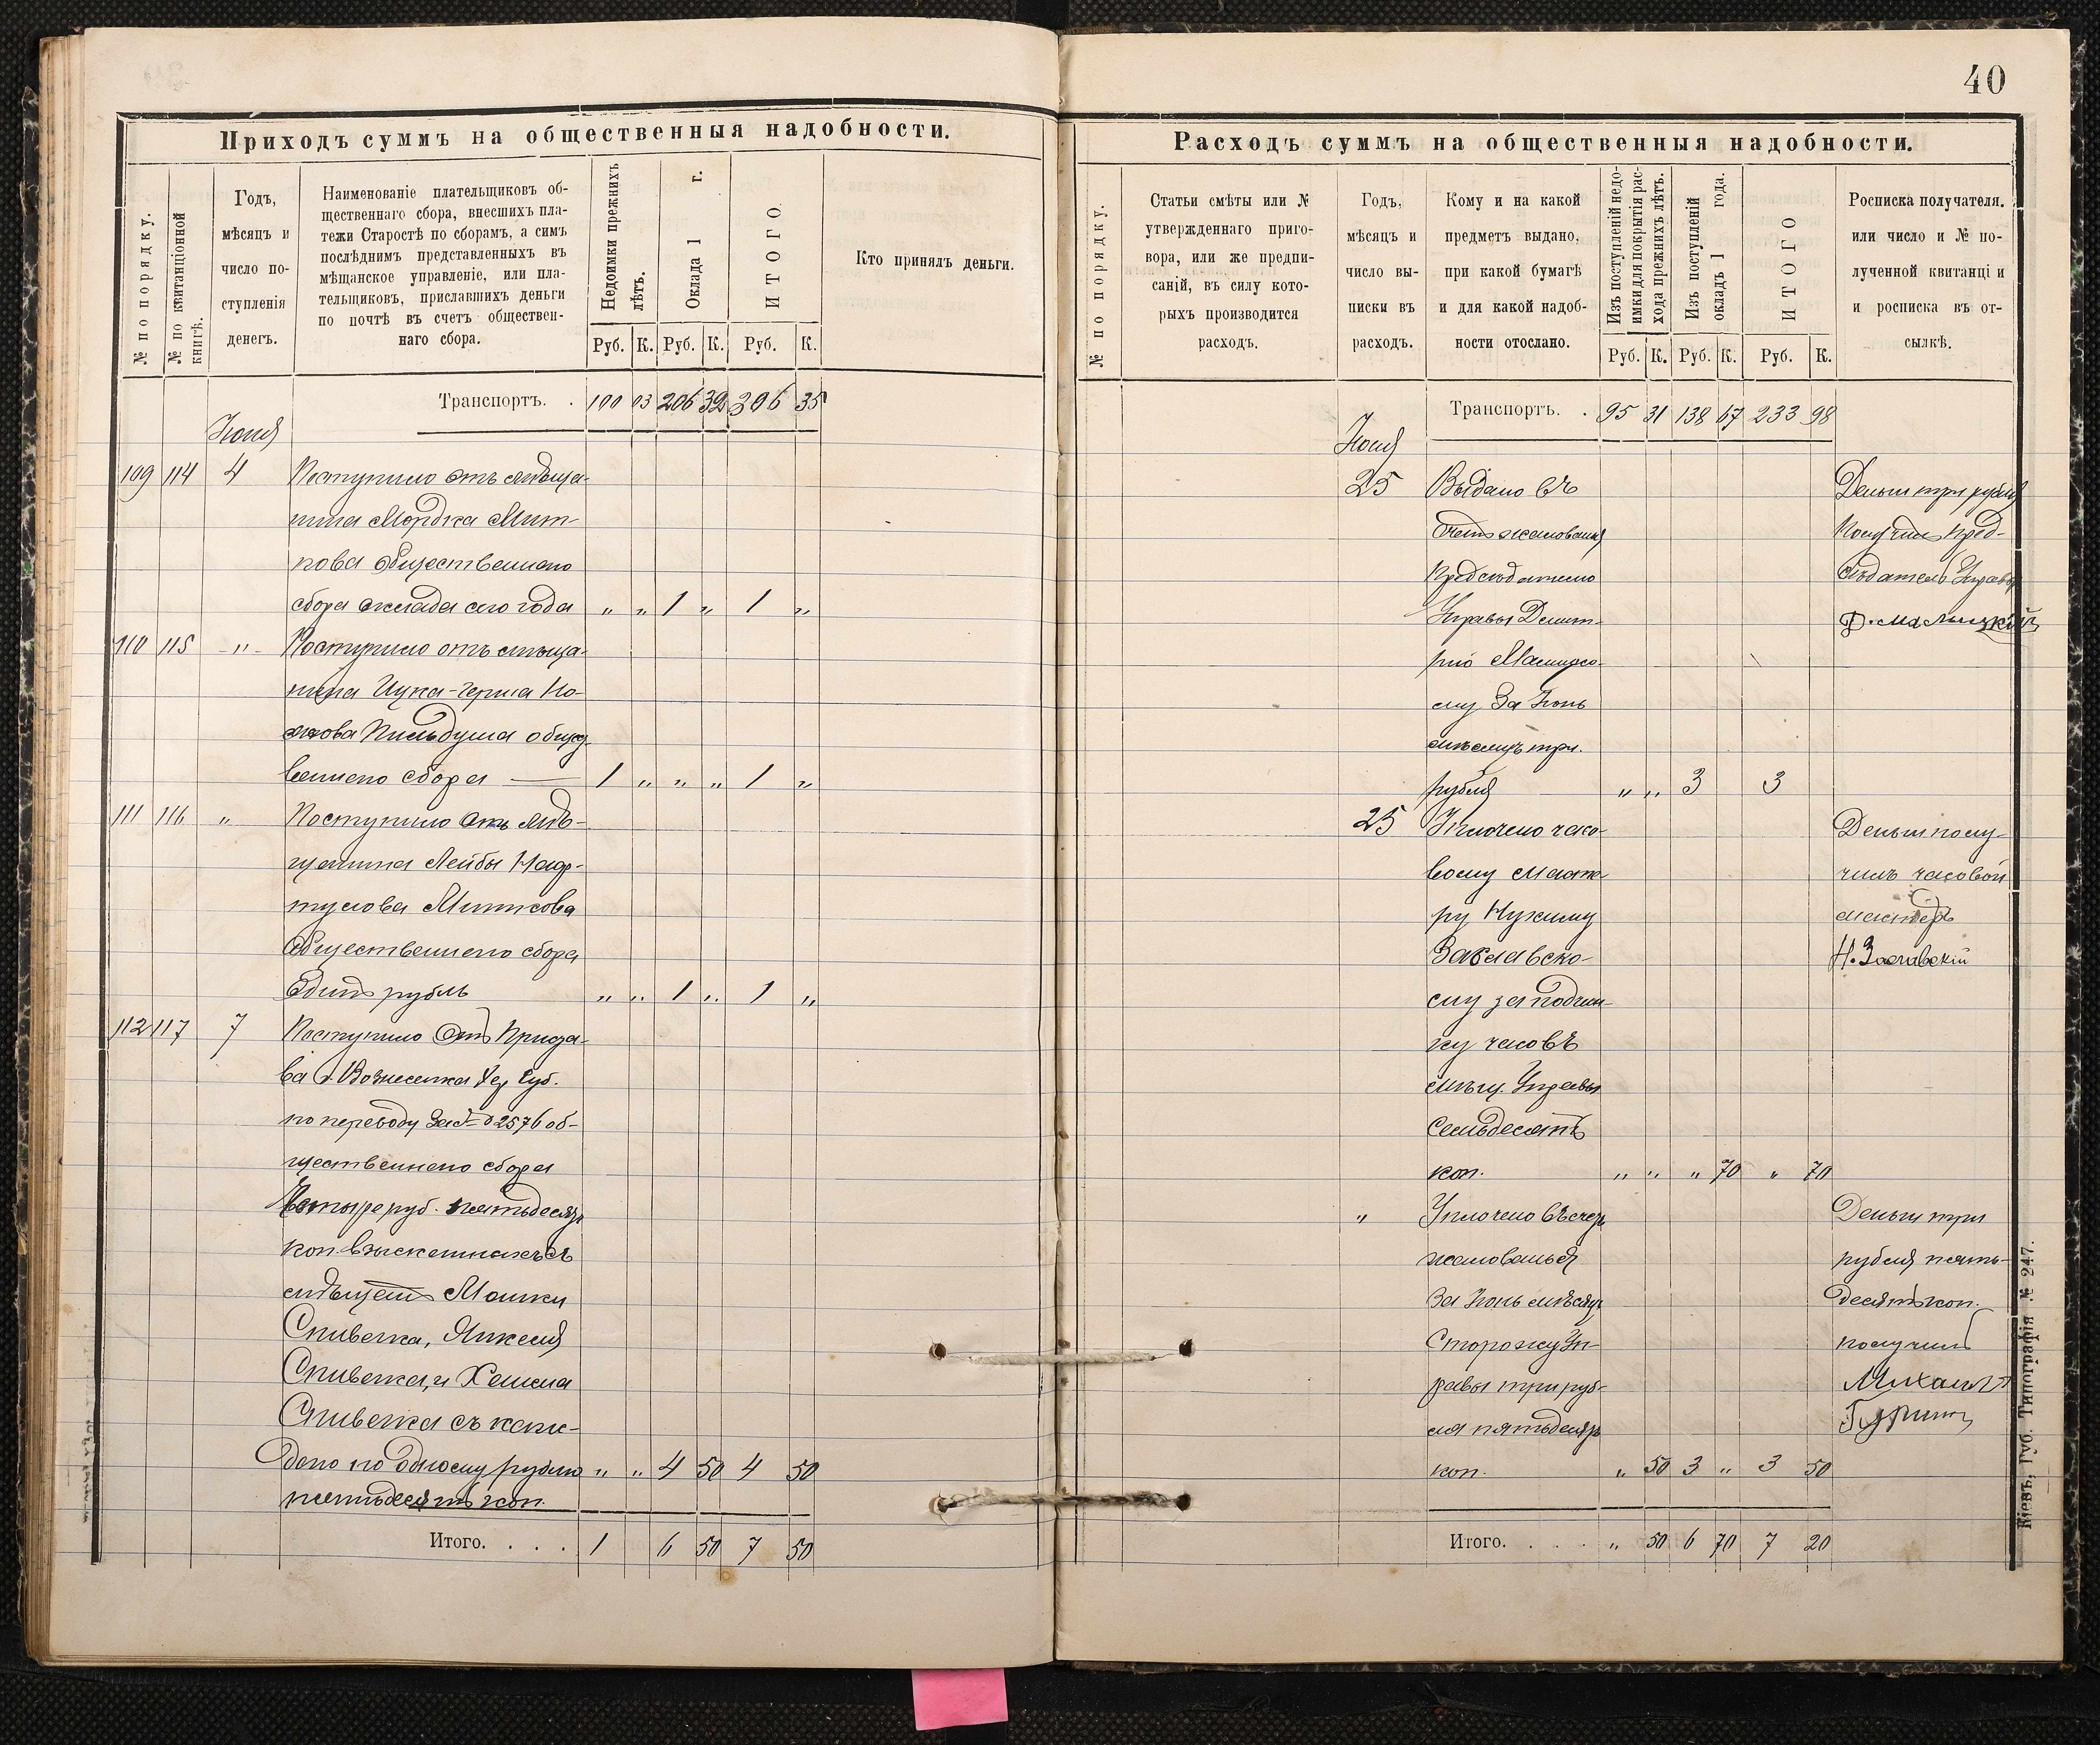 Приходъ суммъ на общественныя надобности.
№ по порядку.
№ по квитанціонной
книгѣ.
Годъ,
мѣсяцъ и
число по-
ступленія
денегъ.
Наименованіе плательщиковъ об-
щественнаго сбора, внесшихъ пла-
тежи Старостѣ по сборамъ, а симъ
послѣднимъ представленныхъ въ
мѣщанское управленіе, или пла-
тельщиковъ, приславшихъ деньги
по почтѣ въ счетъ обществен-
наго сбора.
Недоимки прежнихъ
лѣтъ.
Оклада 1 г.
ИТОГО.
Кто принялъ деньги.
Руб. К. Руб. К. Руб. К.
Транспортъ. . 100 03 206 32 306 35
Іюня
109 114 4 Поступило отъ мѣща-
нина Мордка Мит-
кова общественнаго
сбора оклада сего года „ „ 1 „ 1 „
110 115 „ Поступило отъ мѣща-
нина Ицка-Герша
общес
веннаго сбора — 1 „ „ „ 1 „
111 116 „ Поступило отъ мѣ-
щанина Лейбы Наф-
тулова Миткова
общественнаго сбора
Одинъ рубль „ „ 1 „ 1 „
112 117 7 Поступило отъ
Хер Губ.
по переводу за № 2576 об-
щественнаго сбора
Четыре руб. пятьдесят
коп. взысканныхъ съ
мѣщанъ Мошки
Спивака, Янкеля
Спивака, и Хаима
Спивака съ каж-
дого по одному рублю „ „ 4 50 4 50
пятьдесятъ коп.
Итого. . . . 1 6 50 7 50
40
Расходъ суммъ на общественныя надобности.
№ по порядку.
Статьи смѣты или №
утвержденнаго приго-
вора, или же предпи-
саній, въ силу кото-
рыхъ производится
расходъ.
Годъ,
мѣсяцъ и
число вы-
писки въ
расходъ.
Кому и на какой
предметъ выдано,
при какой бумагѣ
и для какой надоб-
ности отослано.
Изъ поступленій недо-
имки для покрытія рас-
хода прежнихъ лѣтъ.
Изъ поступленій
окладъ 1 года.
ИТОГО
Росписка получателя.
или число и № по-
лученной квитанціи
и росписка въ от-
сылкѣ.
Руб. К. Руб. К. Руб. К.
Транспортъ. . 95 31 138 67 233 98
Іюня
25 Выдано въ
счетъ жалованья
Предсѣдателю
Управы Дмит-
рію
му за Іюнь
мѣсяцъ три
рубля „ „ 3 3
Деньги три рубля
получилъ Пред-
сѣдатель Управы
25 Уплочено часо-
вому масте-
ру Нухиму
Заславско-
му за подчин-
ку часовъ
мѣщ. Управы
Семьдесятъ
коп. „ „ „ 70 „ 70
Деньги полу-
чилъ часовой
мастеръ
Н. Заславскій
„ Уплочено въ счет
жалованья
за Іюнь мѣсяцъ
Сторожу Уп-
равы три руб-
ля пятьдесят
коп. „ 50 3 „ 3 50
Деньги три
рубля пять-
десятъ коп.
получилъ
Михаилъ
Итого. . . . „ 50 6 70 7 20
Кіевъ, Губ. Типографія № 247.